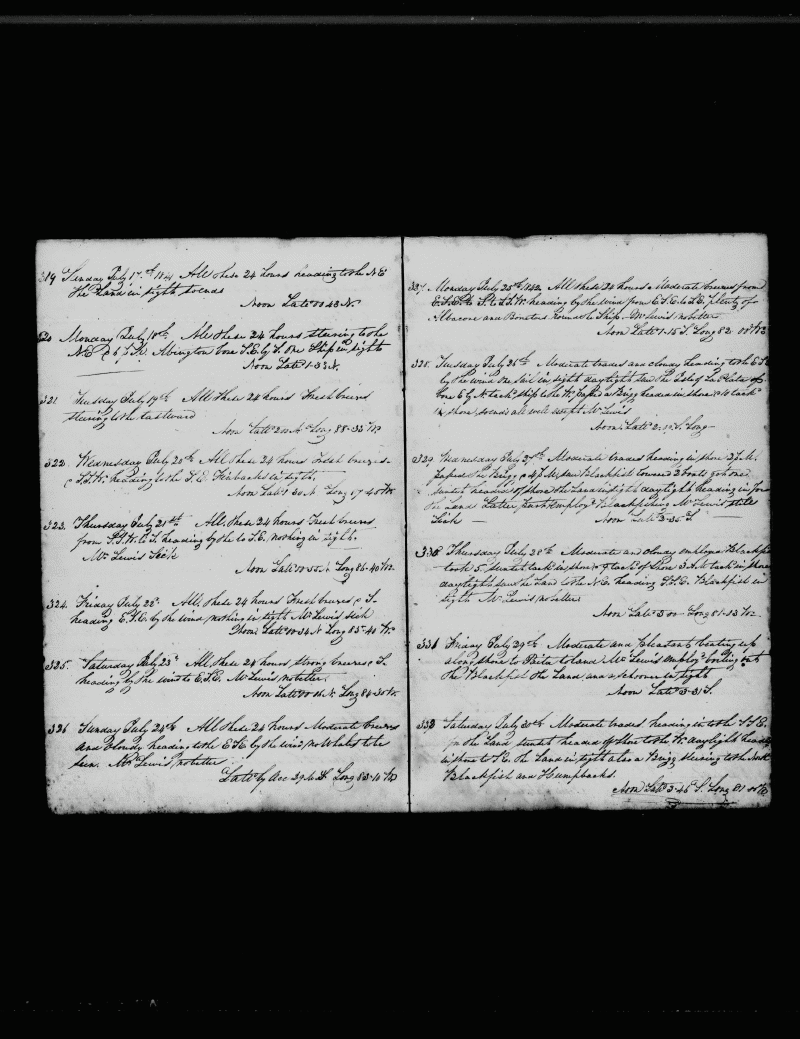 319 Sunday July 17th 1842 All these 24 hours heading to the NE
The Land in sight, so ends
Noon Latd 00 43 N.
320 Monday July 18th. All these 24 hours steering to the
NE Abington bore S.E by S. One Ship in sight
Noon Latd 1.33 N.
321 Tuesday July 19th All these 24 hours Fresh breezes
steering to the Eastward
Noon Latd Long 88-35 W
322. Wednesday July 20th All these 24 hours Fresh breezes
S.S.W. heading to the S.E. Finbacks in sight.
Noon Latd 1 30 N Long 87 45 W.
323. Thursday July 21st All these 24 hours Fresh breezes
from S.S.W. to S. heading by the to S.E. nothing in sight.
Mr. Lewis Sick
Noon Latd 00-55 N Long 86-40 W.
324. Friday July 22d. All these 24 hours Fresh breezes S.
heading E.S.E. by the wind nothing in sight Mr Lewis sick
Noon Latd 00-34 N Long 85-40 W.
325. Saturday July 23d All these 24 hours strong breezes S.
heading by the wind to E.S.E. Mr Lewis no better.
Noon Latd 00 16 N. Long 84-30 W.
326 Sunday July 24th All these 24 hours Moderate breezes
and cloudy heading to the ESE by the wind, no Whales to be
seen. Mr Lewis, no better
Latd by Acc 39 Long 83-10 W
327 Monday July 25th 1842 All these 24 hours Moderate breezes from
to S.S.W. heading by the wind from E.S.E. to S.E. plenty of
Albacore and Bonetos round the Ship. Mr Lewis no better
Noon Latd 1-15 S. Long 82 00 W
328. Tuesday July 26th Moderate trades and cloudy heading to the
by the wind One Sail in sight daylight saw the Isle of La Plata
bore E by N tack ship to the W. passed a Brigg headed in shore tack
in shore, so ends all well except Mr Lewis
Noon Latd S. Long
329 Wednesday July 27th Moderate trades heading in shore 2 P.M.
passed the Brigg 4 P.M. saw Blackfish lowered 2 boats got one
sunset headed off shore the Land in sight daylight heading in for
the Land Latter part employd Blackfishing Mr Lewis still
Sick Noon Latd 3-35 S.
330 Thursday July 28th Moderate and cloudy employed Blackfish
took 5, sunset tack in shore 9 tack off Shore 3 A.M tack in shore
daylight saw the Land to the N.E. heading S.S.E. Blackfish in
sight Mr Lewis no better
Noon Latd Long 81-13 W.
331 Friday July 29th Moderate and Pleasant beating up
along shore to Paita to land Mr Lewis employd boiling out
the Blackfish the Land and a schooner in sight
Noon Latd 3-31 S.
332 Saturday July 30th Moderate trades heading in to the S.S.E.
for the Land sunset headed off Shore to the W. daylight headed
in shore to S.E. the Land in sight also a Brigg steering to the North
Blackfish and Humpbacks.
Noon Latd 3-46 S. Long 81 00 W